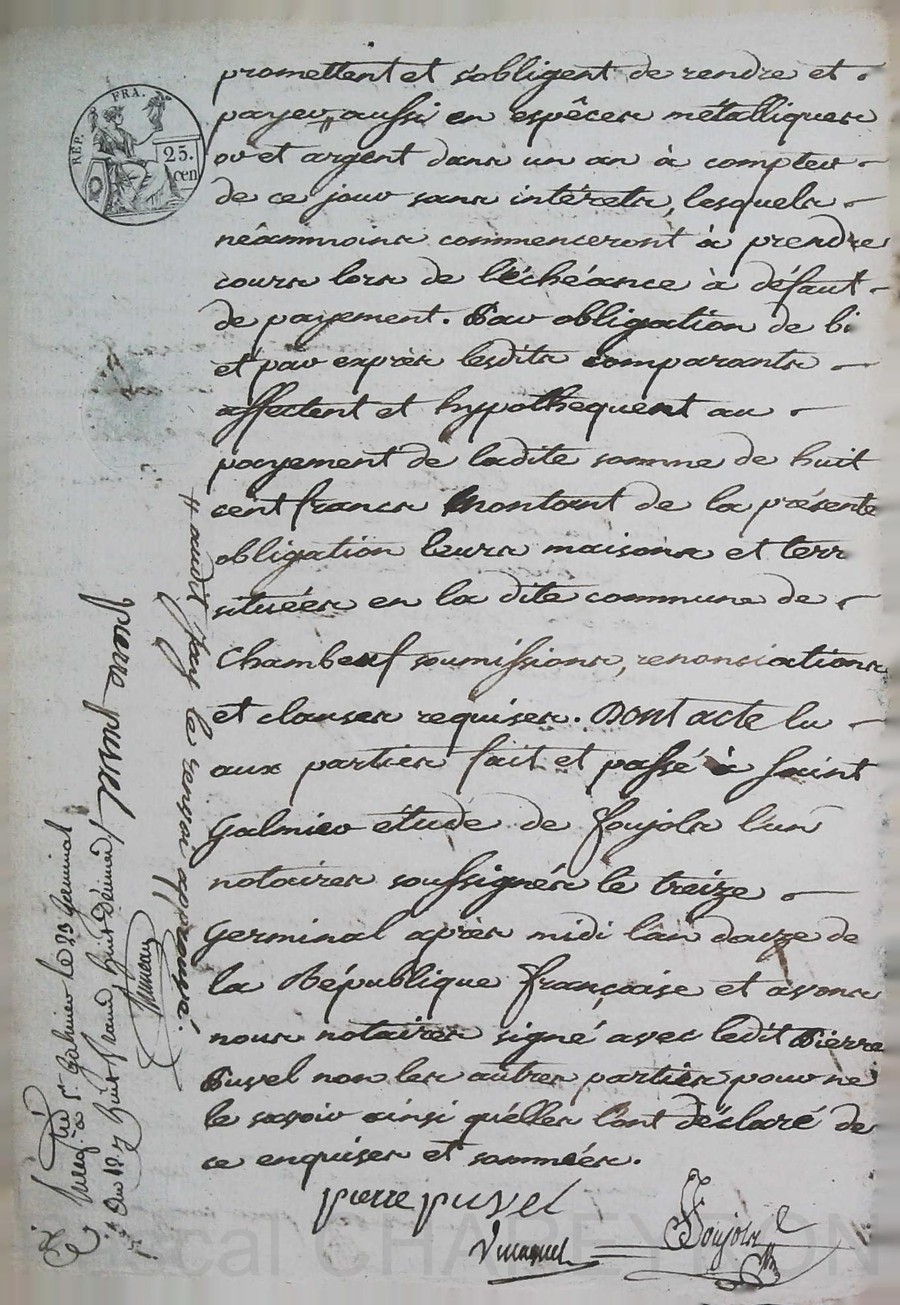 REP. FRA.
25.
cen
promettent et s'obligent de rendre et
payer, aussi en espèces métalliques
or et argent dans un an à compter
de ce jour sans intérets, lesquels
néammoins commenceront à prendre
cours lors de l'échéance à défaut
de payement. Par obligation de bi
et par exprès lesdits comparants
affectent et hypothequent au
payement de ladite somme de huit
cent francs montant de la présente
obligation leurs maisons et terr
situées en la dite commune de
Chambeuf soumissions, renonciations
et clauses requises. Dont acte lu
aux parties fait et passé à Saint
Galmier étude de Foujols l'un
notaires soussignés le treize
Germinal après midi l'an douze de
la République française et avons
nous notaires signé avec ledit Pierre
Puvel non les autres parties pour ne
le savoir ainsi qu'elles l'ont déclaré de
ce enquises et sommées.
pierre puvel
Foujols
le renvoi approuvé.
à St. Galmier le 23 Germinal
huit francs